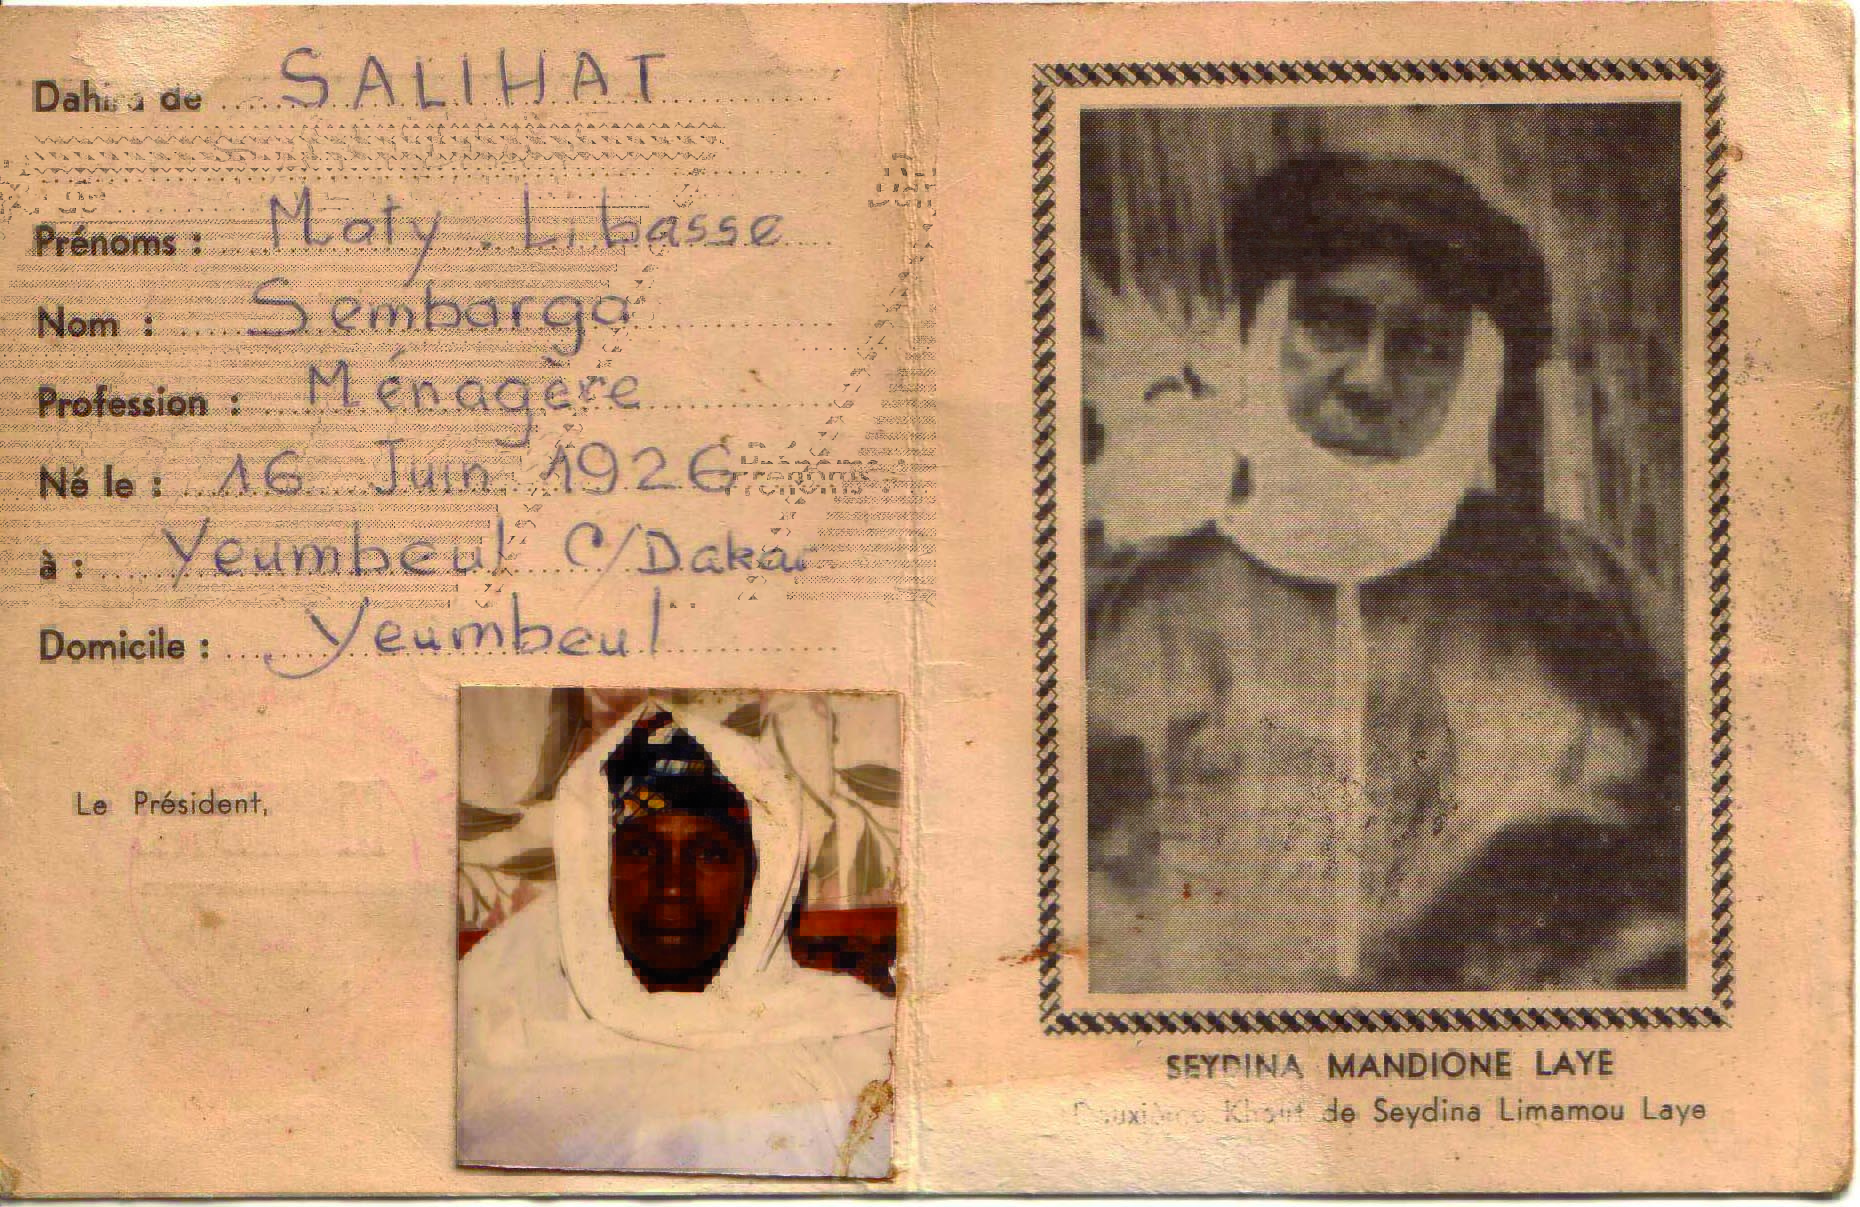 Dahira de SALIHAT
Prénoms : Maty . Libasse
Nom : Sembarga
Profession : Ménagère
Né le : 16 Juin 1926
à : Yeumbeul C/Dakar
Domicile : Yeumbeul
Le Président,
SEYDINA MANDIONE LAYE
Deuxième Khalif de Seydina Limamou Laye